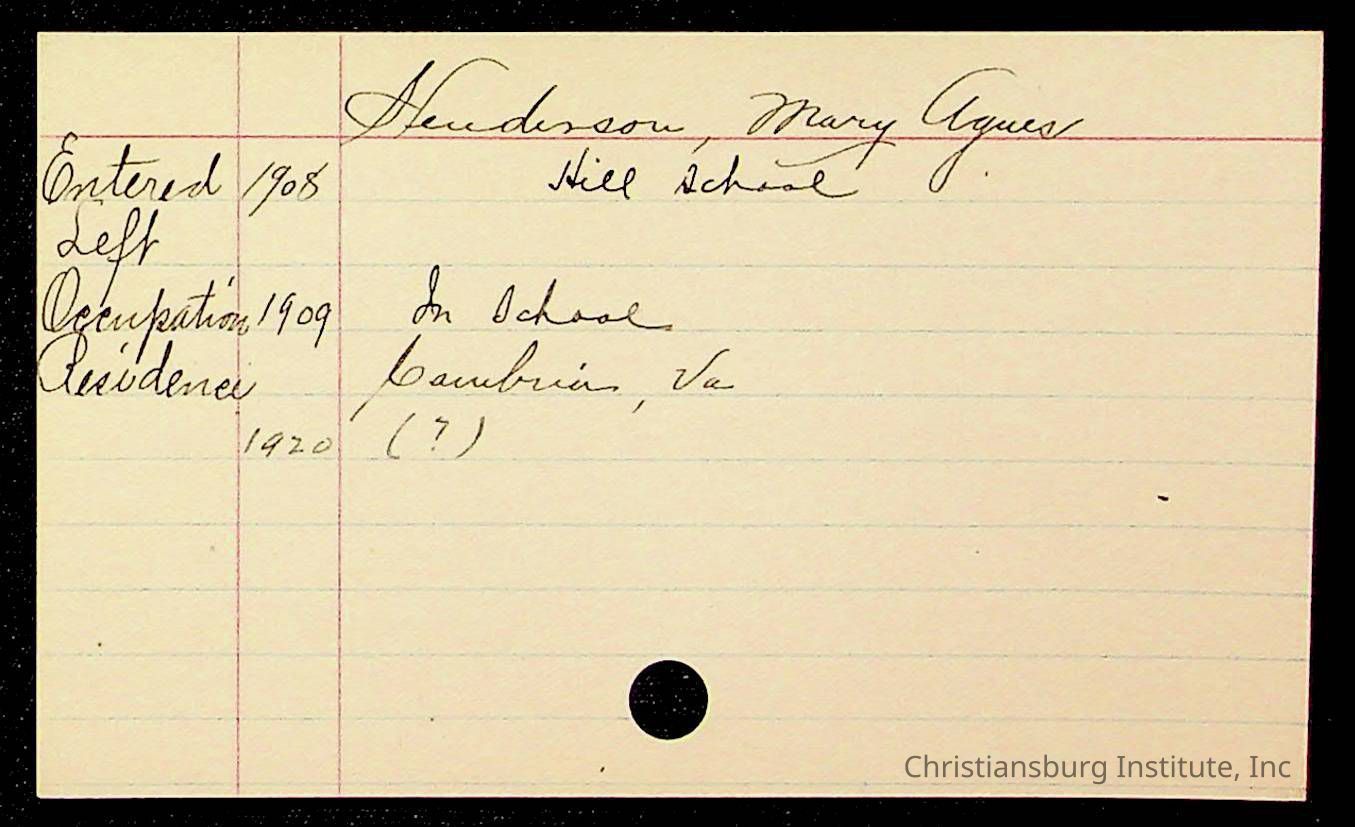 Henderson, Mary Agnes
Entered 1908 Hill School
Left
Occupation 1909 In School
Residence Cambria, Va
1920 (?)
Christiansburg Institute, Inc